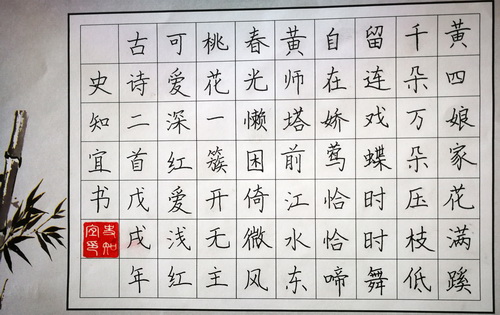 黄四娘家花满蹊
千朵万朵压枝低
留连戏蝶时时舞
自在娇莺恰恰啼
黄师塔前江水东
春光懒困倚微风
桃花一簇开无主
可爱深红爱浅红
古诗二首戊戌年
史知宜书
史知宜印